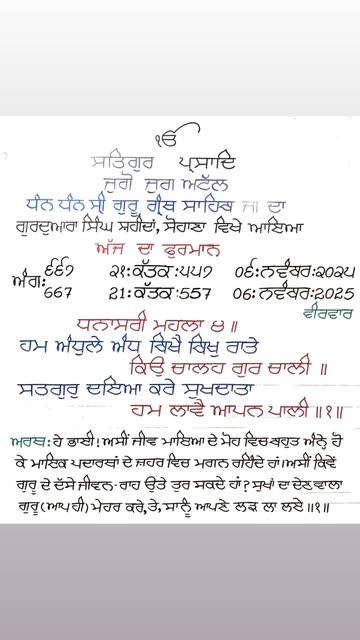 ੴ
ਸਤਿਗੁਰ ਪ੍ਰਸਾਦਿ
ਜੁਗੋ ਜੁਗ ਅਟੱਲ
ਧੰਨ ਧੰਨ ਸ੍ਰੀ ਗੁਰੂ ਗ੍ਰੰਥ ਸਾਹਿਬ ਜੀ ਦਾ
ਗੁਰਦੁਆਰਾ ਸਿੰਘ ਸ਼ਹੀਦਾਂ, ਸੋਹਾਣਾ ਵਿਖੇ ਆਇਆ
ਅੱਜ ਦਾ ਫੁਰਮਾਨ
ਅੰਗ: ੬੬੭ ੨੧:ਕੱਤਕ:੫੫੭ ੦੬:ਨਵੰਬਰ:੨੦੨੫
667 21:ਕੱਤਕ:557 06:ਨਵੰਬਰ:2025
ਵੀਰਵਾਰ
ਧਨਾਸਰੀ ਮਹਲਾ ੪॥
ਹਮ ਅੰਧੁਲੇ ਅੰਧ ਬਿਖੈ ਬਿਖੁ ਰਾਤੇ
ਕਿਉ ਚਾਲਹ ਗੁਰ ਚਾਲੀ॥
ਸਤਗੁਰੁ ਦਇਆ ਕਰੇ ਸੁਖਦਾਤਾ
ਹਮ ਲਾਵੈ ਆਪਨ ਪਾਲੀ॥੧॥
ਅਰਥ: ਹੇ ਭਾਈ! ਅਸੀਂ ਜੀਵ ਮਾਇਆ ਦੇ ਮੋਹ ਵਿਚ ਬਹੁਤ ਅੰਨ੍ਹੇ ਹੋ
ਕੇ ਮਾਇਕ ਪਦਾਰਥਾਂ ਦੇ ਜ਼ਹਰ ਵਿਚ ਮਗਨ ਰਹਿੰਦੇ ਹਾਂ। ਅਸੀਂ ਕਿਵੇਂ
ਗੁਰੂ ਦੇ ਦੱਸੇ ਜੀਵਨ-ਰਾਹ ਉਤੇ ਤੁਰ ਸਕਦੇ ਹਾਂ? ਸੁਖਾਂ ਦਾ ਦੇਣ ਵਾਲਾ
ਗੁਰੂ (ਆਪ ਹੀ) ਮੇਹਰ ਕਰੇ, ਤੇ, ਸਾਨੂੰ ਆਪਣੇ ਲੜ ਲਾ ਲਏ॥੧॥